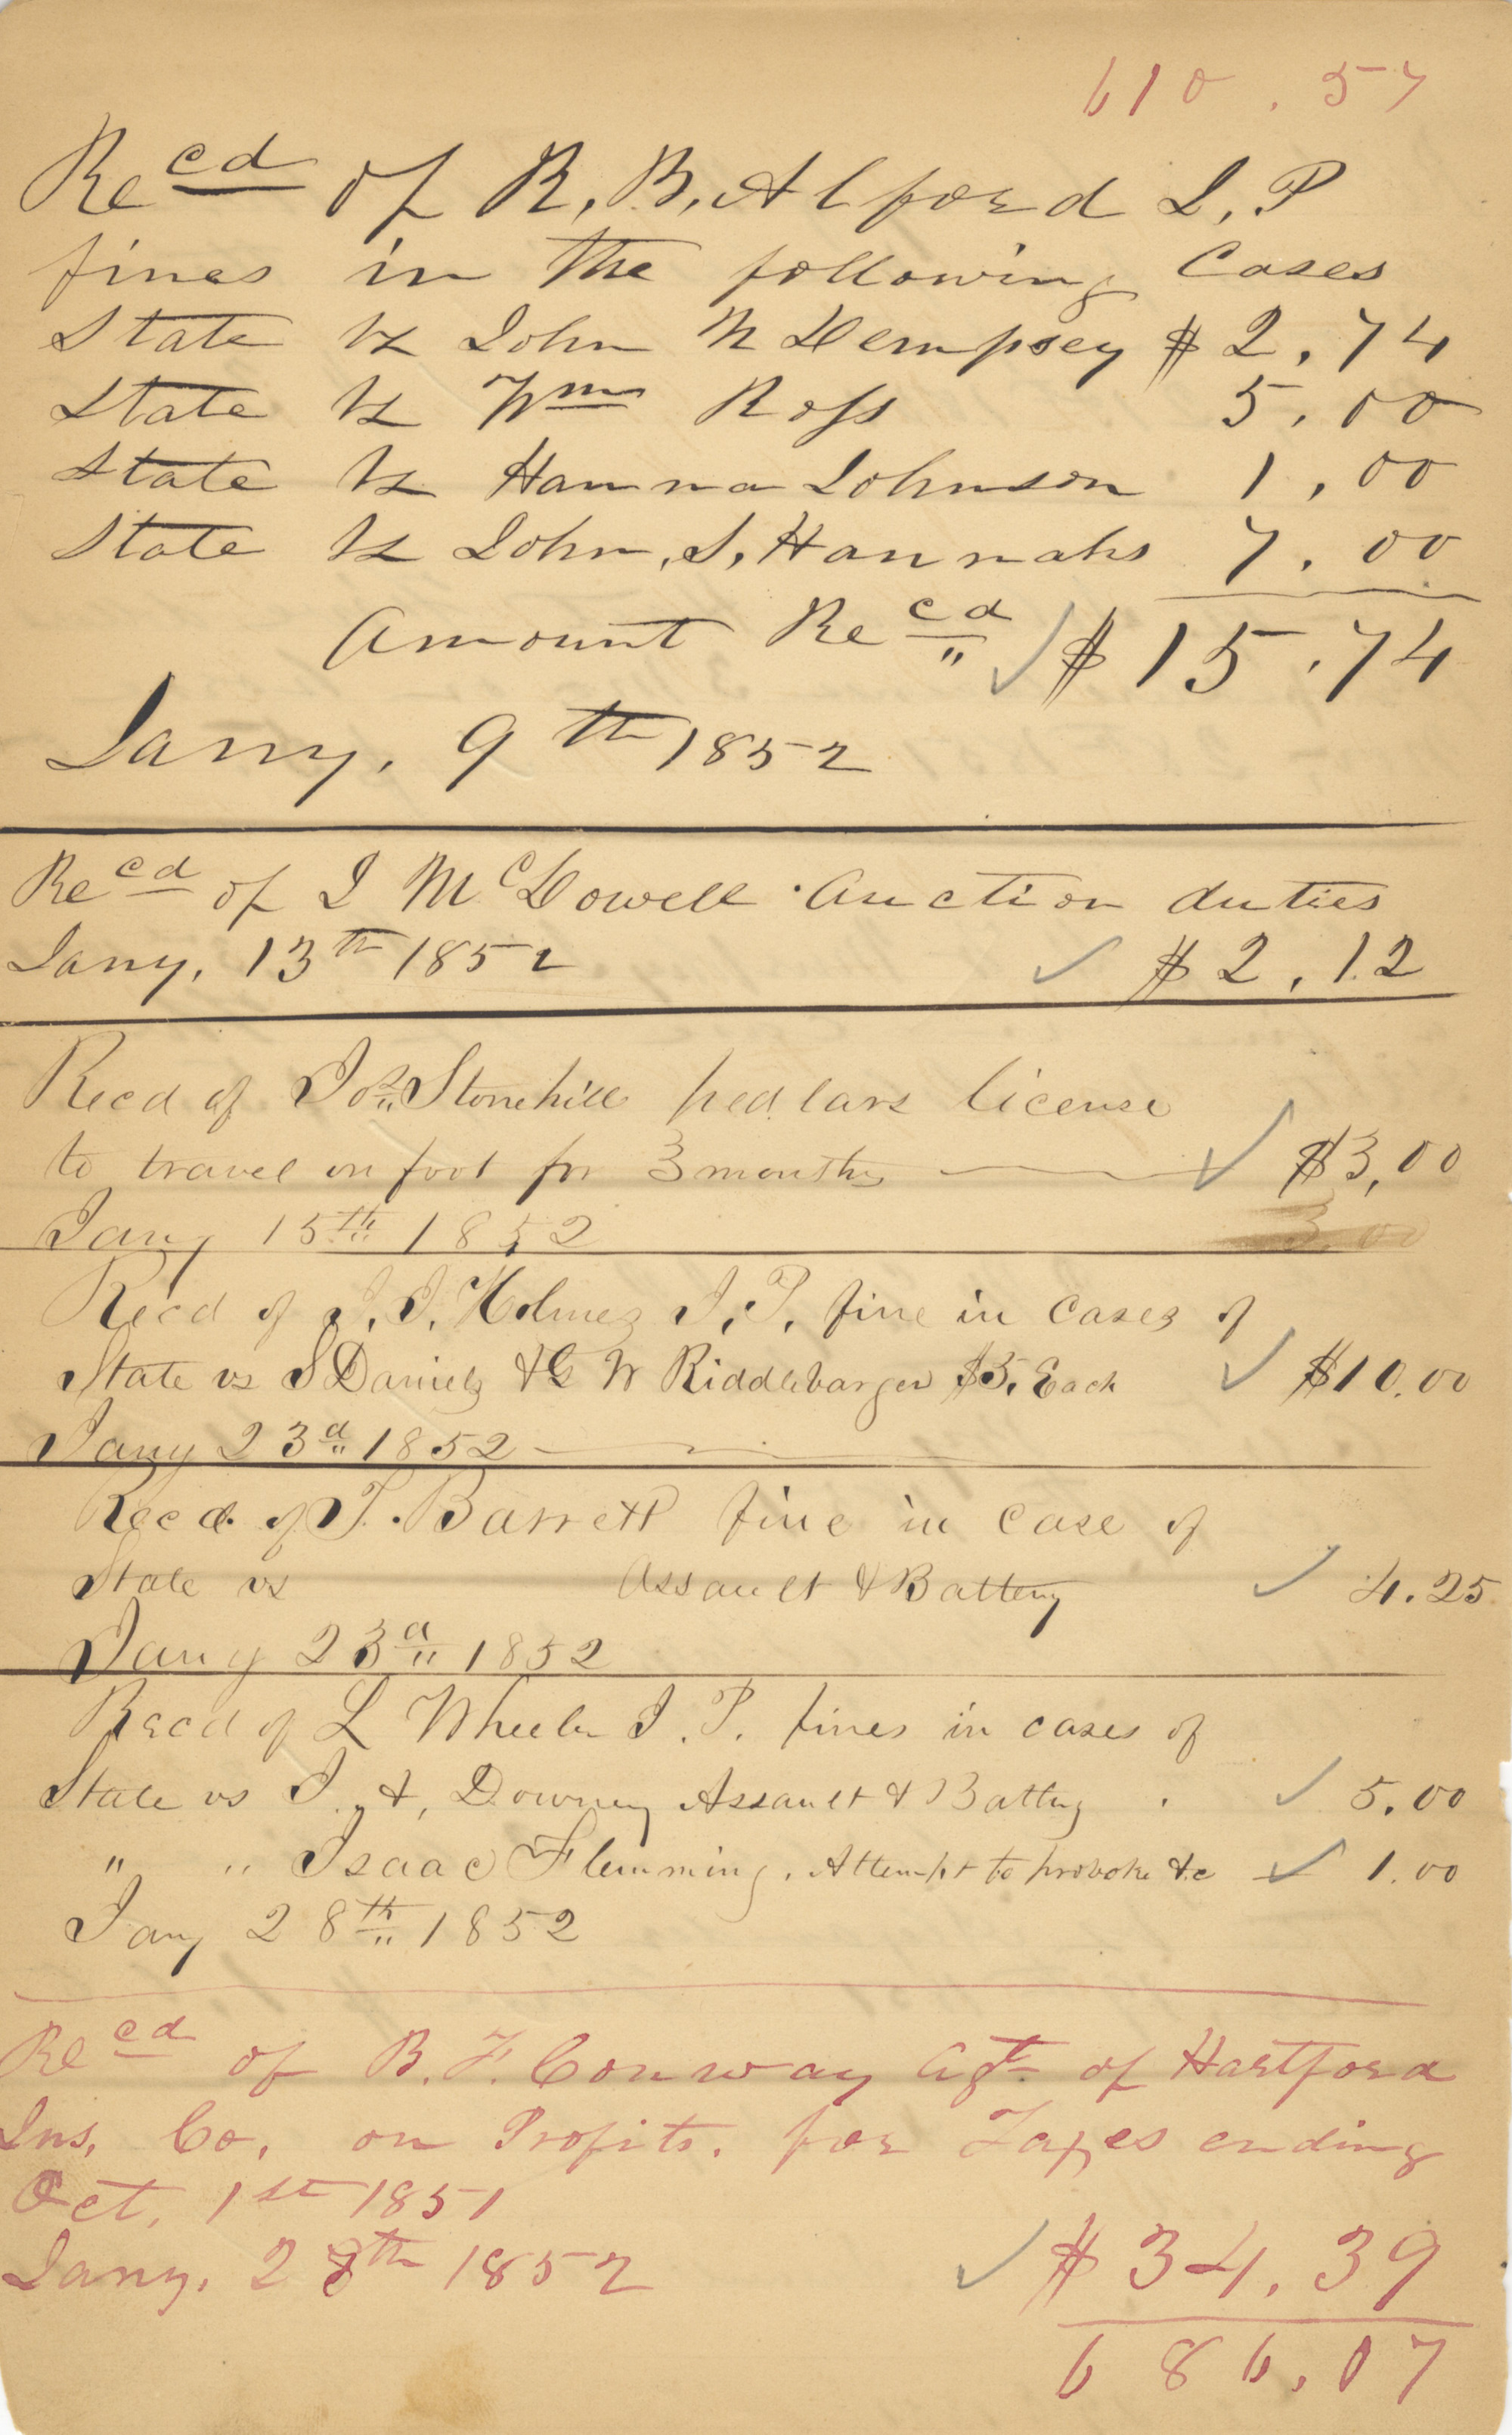 610.57
Recd of R. B. Alford J. P
fines in the following Cases
State vs John N Dempsey $2.74
State vs Wm Ross 5.00
State vs Hanna Johnson 1.00
State vs John, S, Hannahs 7.00
Amount Recd $15.74
Jany, 9th 1852
Recd of J McDowell Auction duties
Jany, 13th 1852 $2.12
Recd of Jos Stonehill pedlars license
to travel on foot for 3 months $3,00
3.00
Jany 15th 1852
Recd of J. J. Holmes J. P. fine in cases of
State vs S Daniels & G W Riddlebarger $5. Each $10.00
Jany 23d 1852
Recd. of T. Barrett fine in case of
State vs Assault & Battery 4.25
Jany 23d 1852
Recd of L Wheeler J. P. fines in cases of
State vs J. &, Downey Assault & Battery 5.00
" " Isaac Flemming. Attempt to provoke &c 1.00
Jany 28th 1852
Recd of B. F. Conway Agt of Hartford
Ins, Co, on Profits. for Taxes ending
Oct, 1st 1851
Jany, 28th 1852 $34.39
686.07